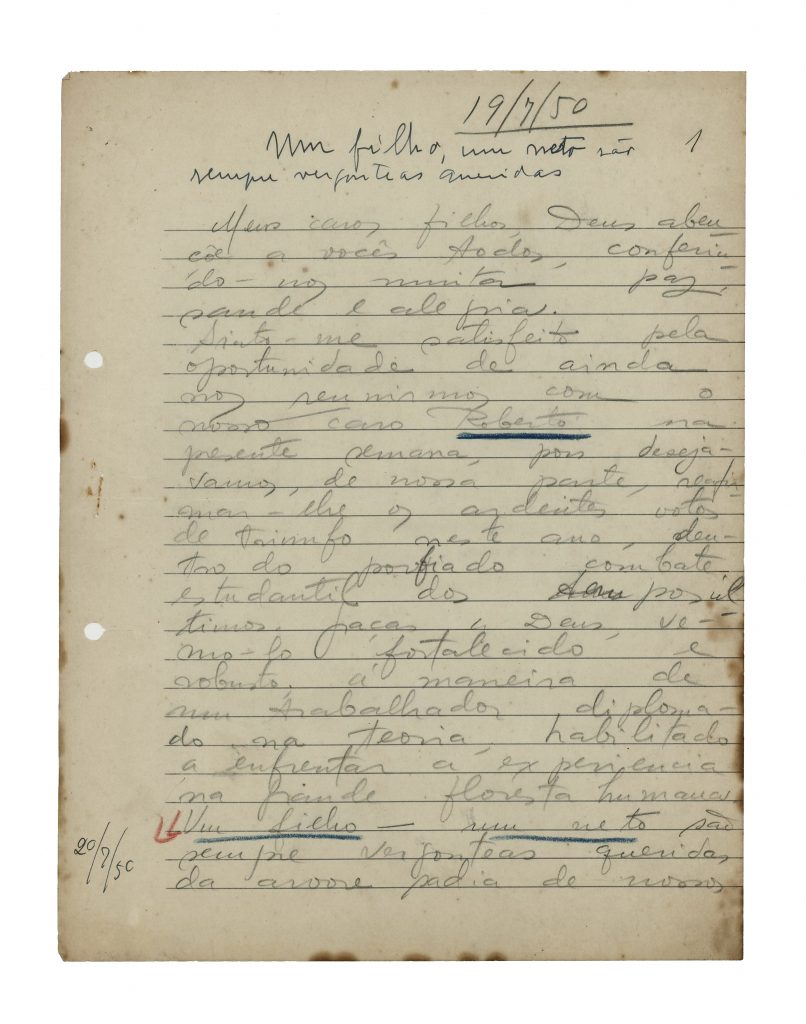 19/7/50
Um filho, um neto são 1
sempre vergonteas queridas
Meus caros filhos, Deus aben
çõe a vocês todos, conferin
do-nos muita paz,
saude e alegria.
Sinto-me satisfeito pela
oportunidade de ainda
nos reunirmos com o
nosso caro Roberto na
presente semana, pois deseja-
vamos, de nossa parte,
mar-lhe os ardentes votos
de triumfo neste ano, den-
tro do porfiado combate
estudantil dos ul
timos. Graças a Deus, ve-
mo-lo fortalecido e
robusto, á maneira de
um trabalhador diploma-
do na teoria, habilitado
a enfrentar a experiencia
na grande floresta humana
Um filho — um neto são
sempre vergonteas queridas
da arvore sadia de nossos
20/7/50